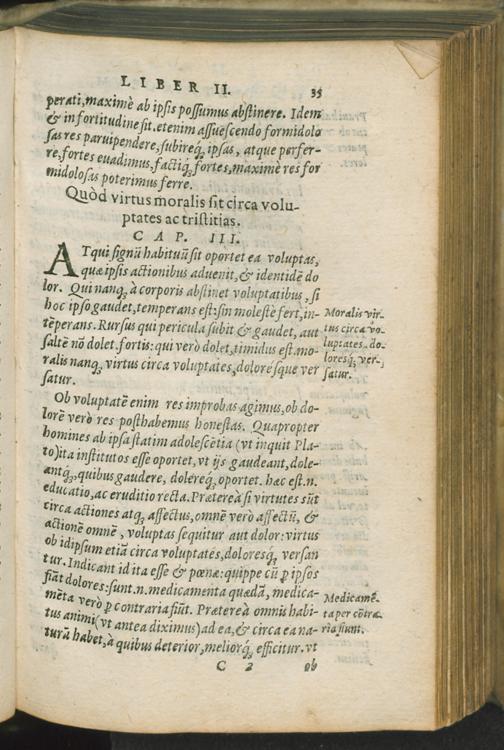 LIBER II. 35
perati, maximè ab ipsis possumus abstinere. Idem
& in fortitudine fit. etenim assuescendo formidolo
sas res parvipendere, subireq́; ipsas, atque perfer-
re, fortes evadimus. factiq́; fortes, maximè res for
midolosas poterimus ferre.
Quòd virtus moralis sit circa volu-
ptates ac tristitias.
CAP. III.
ATqui signū habituū sit oportet ea voluptas,
quæ ipsis actionibus advenit, & identidē do
lor. Qui nanq; à corporis abstinet voluptatibus, si
hoc ipso gaudet, temperans est: sin molestè fert, in-
tēperans. Rursus qui pericula subit & gaudet, aut
saltē nō dolet, fortis: qui verò dolet, timidus est. mo
ralis nanq; virtus circa voluptates, doloresque ver
satur.
Moralis vir-
tus circa vo-
luptates, do-
loresq́; ver-
satur.
Ob voluptatē enim res improbas agimus, ob do-
lorē verò res posthabemus honestas. Quapropter
homines ab ipsa statim adolescētia (vt inquit Pla-
to) ita institutos esse oportet, vt ijs gaudeant, dole-
antq́; quibus gaudere, dolereq́; oportet. hæc est .n.
educatio, ac eruditio recta. Prætereà si virtutes sūt
circa actiones atq; affectus, omnē verò affectū, &
actionē omnē, voluptas sequitur aut dolor: virtus
ob id ipsum etiā circa voluptates, doloresq́; versan
tur. Indicant id ita esse & pœnæ: quippe cū p ipsos
fiāt dolores: sunt .n. medicamenta quædā, medica-
mēta verò p contraria fiūt. Prætereà omnis habi-
tus animi (vt antea diximus) ad ea, & circa ea na-
turā habet, à quibus deterior, meliorq́; efficitur. vt
Medicamē-
ta per cōtra-
ria fiunt.
C 2 ob